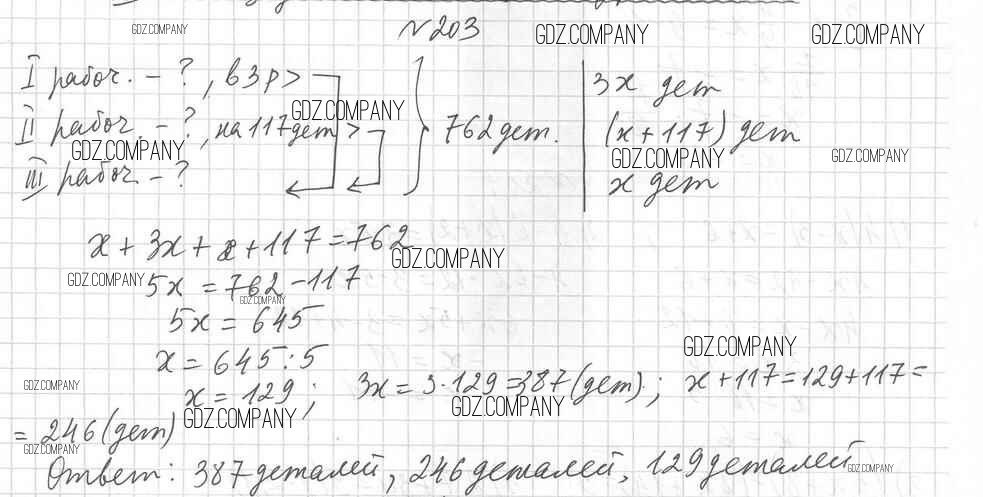 №203
GDZ.COMPANY GDZ.COMPANY GDZ.COMPANY
I рабоч. – ?, в 3 р > 3x дет
GDZ.COMPANY
II рабоч. – ?, на 117 дет > 762 дет. (x + 117) дет
GDZ.COMPANY GDZ.COMPANY GDZ.COMPANY
III рабоч. – ? x дет
x + 3x + x + 117 = 762
GDZ.COMPANY
GDZ.COMPANY 5x = 762 – 117
GDZ.COMPANY
5x = 645
GDZ.COMPANY
x = 645 : 5
GDZ.COMPANY
x = 129; 3x = 3·129 = 387 (дет); x + 117 = 129 + 117 =
GDZ.COMPANY GDZ.COMPANY
= 246 (дет)
GDZ.COMPANY
Ответ: 387 деталей, 246 деталей, 129 деталей
GDZ.COMPANY